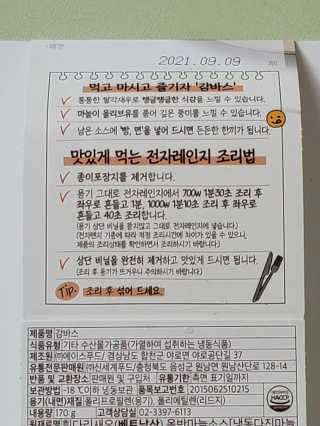 2021.09.09
먹고 마시고 즐기자 '감바스'
통통한 탈각새우로 탱글탱글한 식감을 느낄 수 있습니다.
마늘이 올리브유를 품어 깊은 풍미를 느낄 수 있습니다.
남은 소스에 '빵, 면'을 넣어 드시면 든든한 한끼가 됩니다.
맛있게 먹는 전자레인지 조리법
종이포장지를 제거합니다.
용기 그대로 전자레인지에서 700w 1분30초 조리 후
좌우로 흔들고 1분, 1000w 1분10초 조리 후 좌우로
흔들고 40초 조리합니다.
(용기 상단 비닐을 뜯지않고 그대로 전자레인지에 넣습니다.)
(전자렌지 기종에 따라 적정 조리시간에 차이가 있을 수 있으니,
제품의 조리상태를 확인하면서 조리하시기 바랍니다.)
상단 비닐을 완전히 제거하고 맛있게 드시면 됩니다.
(조리 후 용기가 뜨거우니 주의하시기 바랍니다.)
Tip. 조리 후 섞어 드세요
제품명 감바스
식품유형 기타 수산물가공품(가열하여 섭취하는 냉동식품)
제조원 ㈜에이스푸드/ 경상남도 합천군 야로면 야로공단길 37
유통전문판매원 ㈜신세계푸드/충청북도 음성군 원남면 원남산단로 128-14
반품 및 교환장소 판매원 및 구입처 유통기한 측면 표기일까지
보관방법 -18 ℃이하 냉동보관 품목보고번호 20150622510215
용기(내면)재질 폴리프로필렌(용기), 폴리에틸렌(리드지)
내용량 170 g 고객상담실 02-3397-6113
HACCP